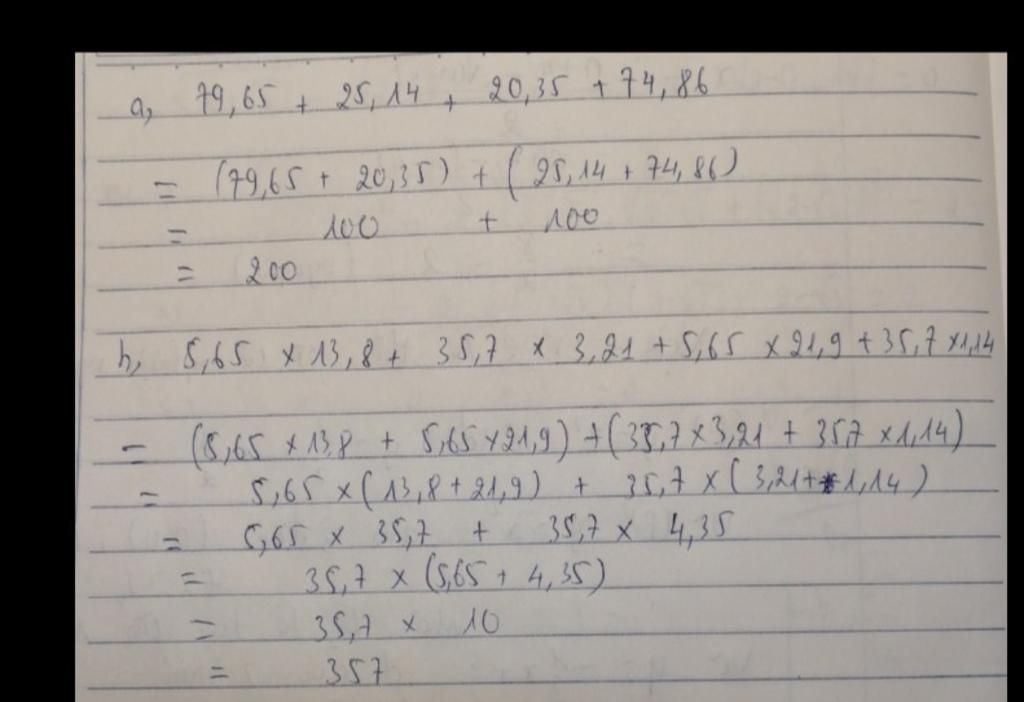 a, 79,65 + 25,14 + 20,35 + 74,86
= (79,65 + 20,35) + (25,14 + 74,86)
= 100 + 100
= 200
b, 5,65 x 13,8 + 35,7 x 3,21 + 5,65 x 21,9 + 35,7 x 1,14
= (5,65 x 13,8 + 5,65 x 21,9) + (35,7 x 3,21 + 35,7 x 1,14)
= 5,65 x (13,8 + 21,9) + 35,7 x (3,21 + 1,14)
= 5,65 x 35,7 + 35,7 x 4,35
= 35,7 x (5,65 + 4,35)
= 35,7 x 10
= 357